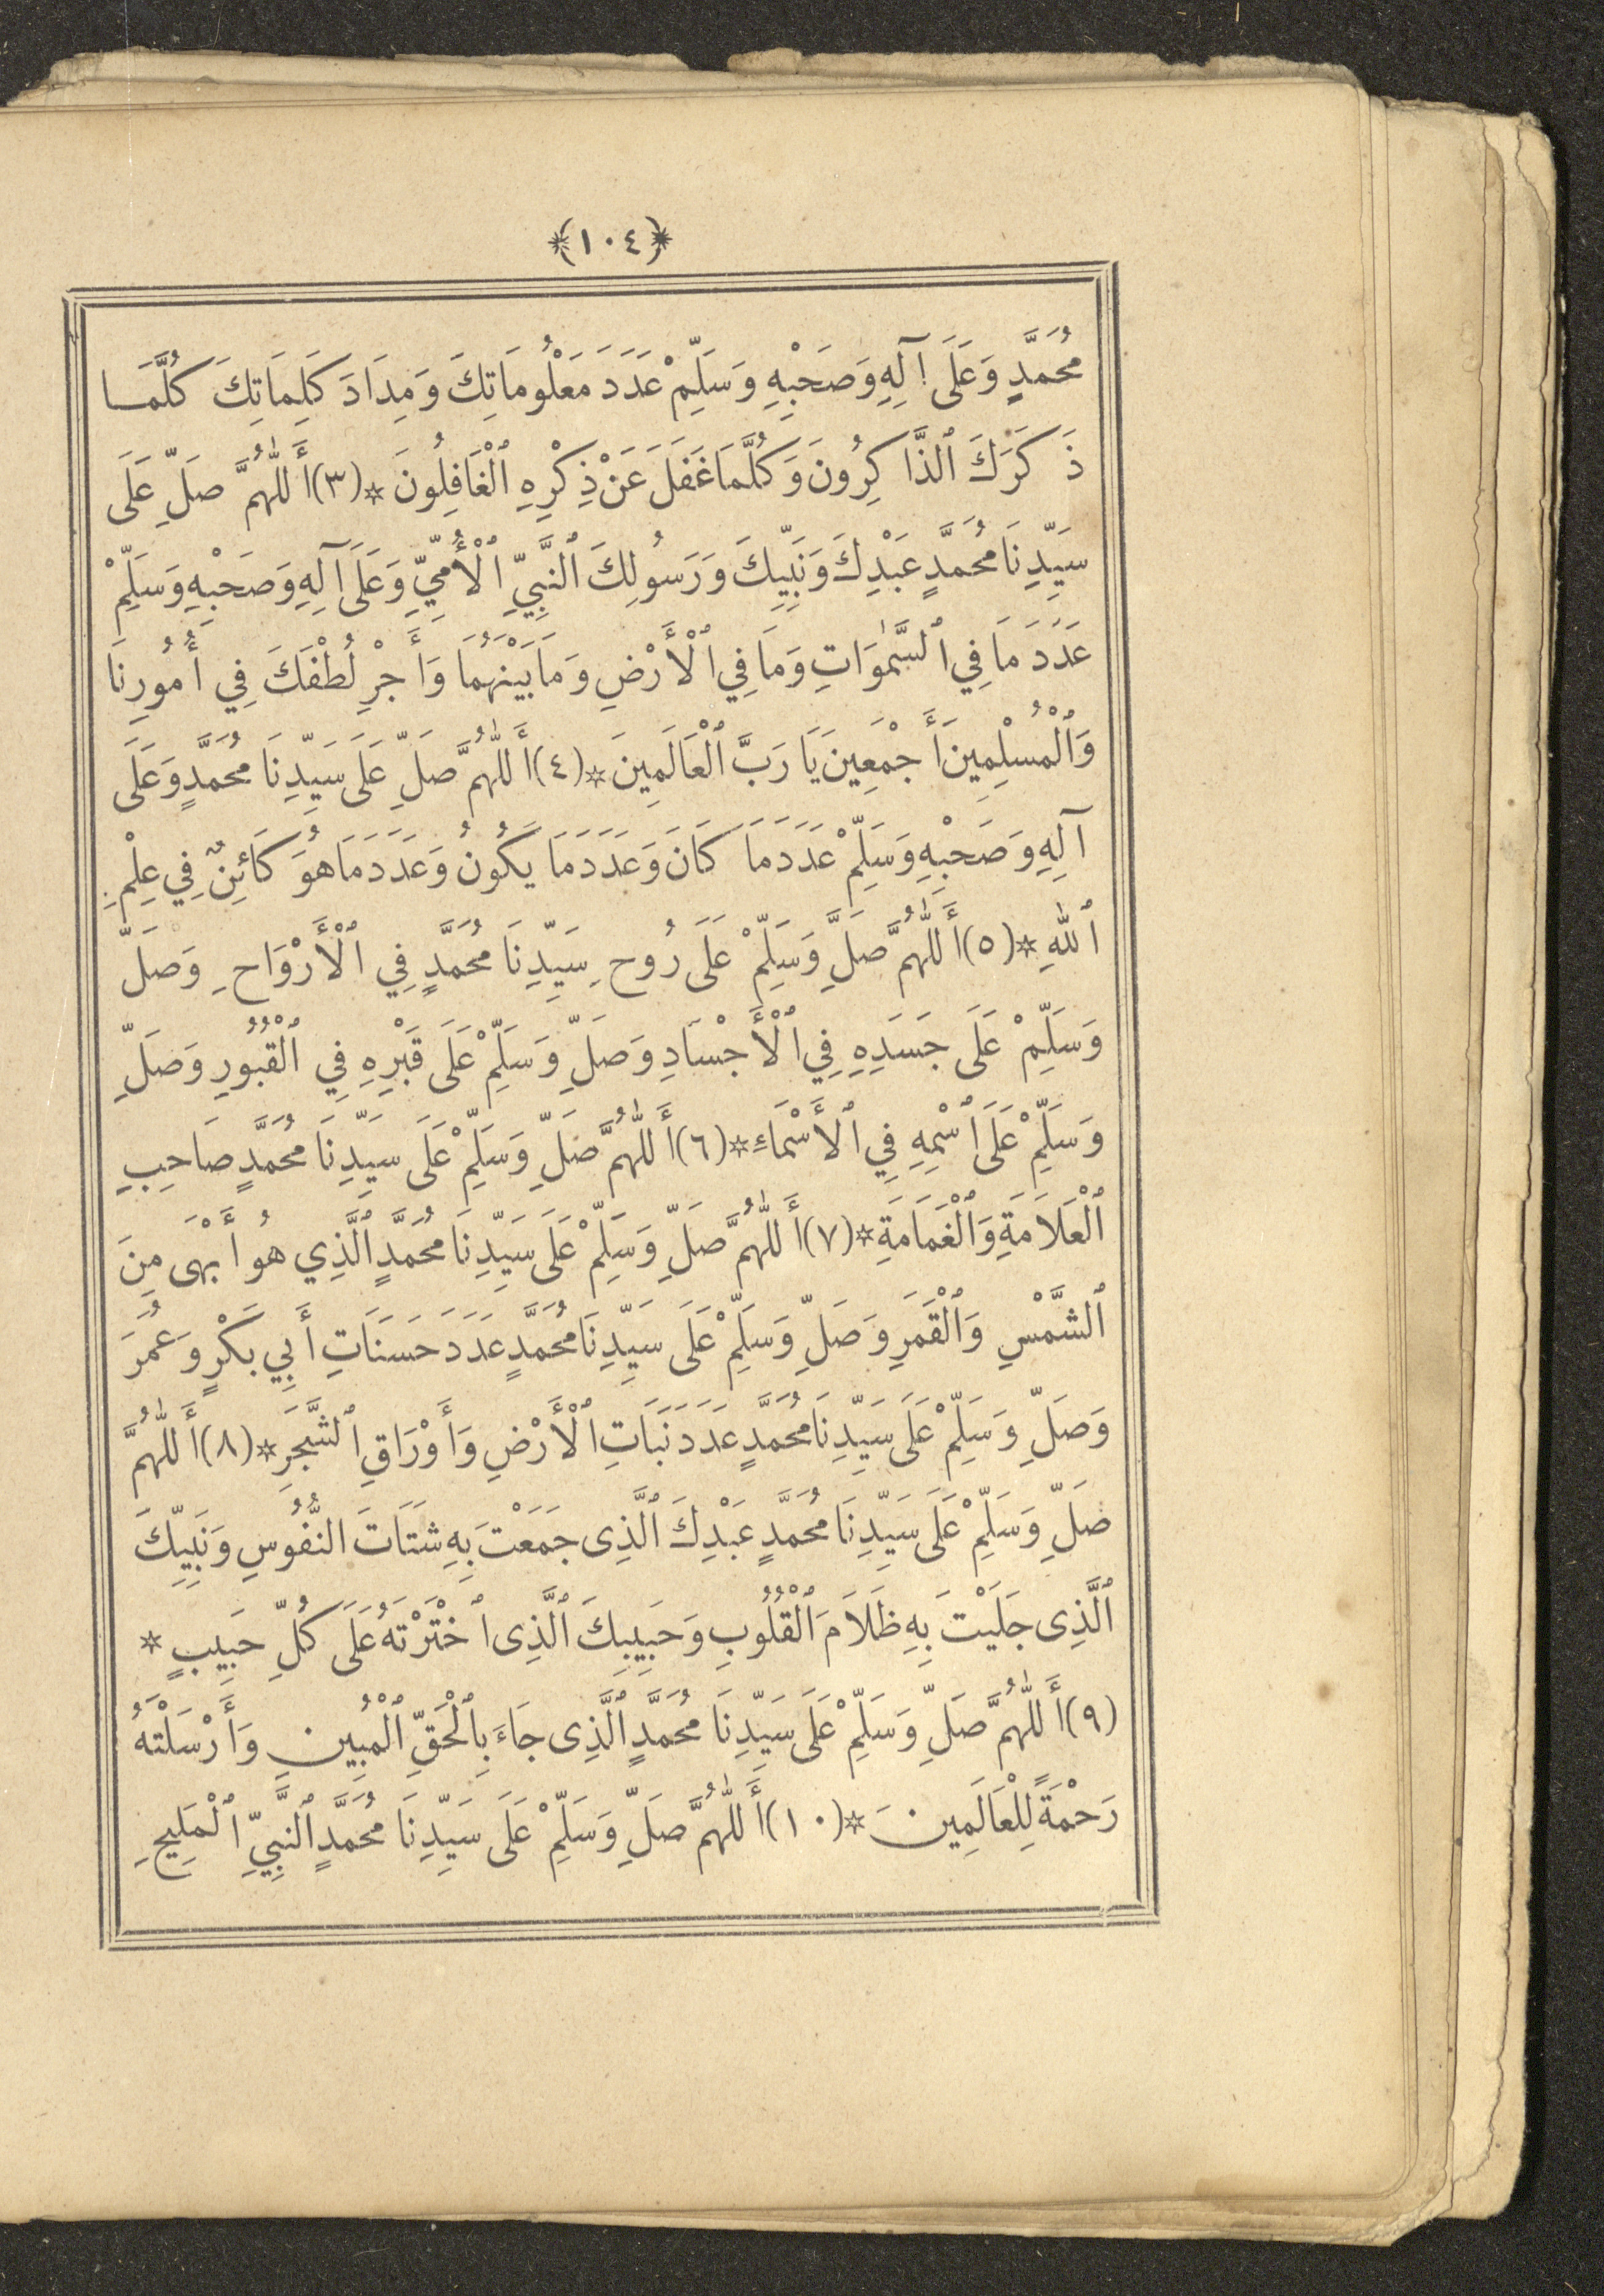 ﴿١٠٤﴾
مُحَمَّدٍ وَعَلَى آلِهِ وَصَحْبِهِ وَسَلِّمْ عَدَدَ مَعْلُومَاتِكَ وَمِدَادَ كَلِمَاتِكَ كُلَّمَا
ذَكَرَكَ ٱلذَّاكِرُونَ وَكُلَّمَا غَفَلَ عَنْ ذِكْرِهِ ٱلْغَافِلُونَ * (٣) أَللّٰهُمَّ صَلِّ عَلَى
سَيِّدِنَا مُحَمَّدٍ عَبْدِكَ وَنَبِيِّكَ وَرَسُولِكَ ٱلنَّبِيِّ ٱلْأُمِّيِّ وَعَلَى آلِهِ وَصَحْبِهِ وَسَلِّمْ
عَدَدَ مَا فِي ٱلسَّمٰوَاتِ وَمَا فِي ٱلْأَرْضِ وَمَا بَيْنَهُمَا وَأَجْرِ لُطْفَكَ فِي أُمُورِنَا
وَٱلْمُسْلِمِينَ أَجْمَعِينَ يَا رَبَّ ٱلْعَالَمِينَ * (٤) أَللّٰهُمَّ صَلِّ عَلَى سَيِّدِنَا مُحَمَّدٍ وَعَلَى
آلِهِ وَصَحْبِهِ وَسَلِّمْ عَدَدَ مَا كَانَ وَعَدَدَ مَا يَكُونُ وَعَدَدَ مَا هُوَ كَائِنٌ فِي عِلْمِ
ٱللّٰهِ * (٥) أَللّٰهُمَّ صَلِّ وَسَلِّمْ عَلَى رُوحِ سَيِّدِنَا مُحَمَّدٍ فِي ٱلْأَرْوَاحِ وَصَلِّ
وَسَلِّمْ عَلَى جَسَدِهِ فِي ٱلْأَجْسَادِ وَصَلِّ وَسَلِّمْ عَلَى قَبْرِهِ فِي ٱلْقُبُورِ وَصَلِّ
وَسَلِّمْ عَلَى ٱسْمِهِ فِي ٱلأَسْمَاءِ * (٦) أَللّٰهُمَّ صَلِّ وَسَلِّمْ عَلَى سَيِّدِنَا مُحَمَّدٍ صَاحِبِ
ٱلْعَلاَمَةِ وَٱلْغَمَامَةِ * (٧) أَللّٰهُمَّ صَلِّ وَسَلِّمْ عَلَى سَيِّدِنَا مُحَمَّدٍ ٱلَّذِي هُو أَبْهَى مِنَ
ٱلشَّمْسِ وَٱلْقَمَرِ وَصَلِّ وَسَلِّمْ عَلَى سَيِّدِنَا مُحَمَّدٍ عَدَدَ حَسَنَاتِ أَبِي بَكْرٍ وَعُمَرَ
وَصَلِّ وَسَلِّمْ عَلَى سَيِّدِنَا مُحَمَّدٍ عَدَدَ نَبَاتِ ٱلْأَرْضِ وَأَوْرَاقِ ٱلشَّجَرِ * (٨) أَللّٰهُمَّ
صَلِّ وَسَلِّمْ عَلَى سَيِّدِنَا مُحَمَّدٍ عَبْدِكَ ٱلَّذِى جَمَعْتَ بِهِ شَتَاتَ النُّفُوسِ وَنَبِيِّكَ
ٱلَّذِى جَلَيْتَ بِهِ ظَلاَمَ ٱلْقُلُوبِ وَحَبِيبِكَ ٱلَّذِى ٱخْتَرْتَهُ عَلَى كُلِّ حَبِيبٍ *
(٩) أَللّٰهُمَّ صَلِّ وَسَلِّمْ عَلَى سَيِّدِنَا مُحَمَّدٍ ٱلَّذِى جَاءَ بِٱلْحَقِّ ٱلْمُبِينِ وَأَرْسَلْتَهُ
رَحْمَةً لِلْعَالَمِينَ * (١٠) أَللّٰهُمَّ صَلِّ وَسَلِّمْ عَلَى سَيِّدِنَا مُحَمَّدٍ ٱلنَّبِيِّ ٱلْمَلِيحِ